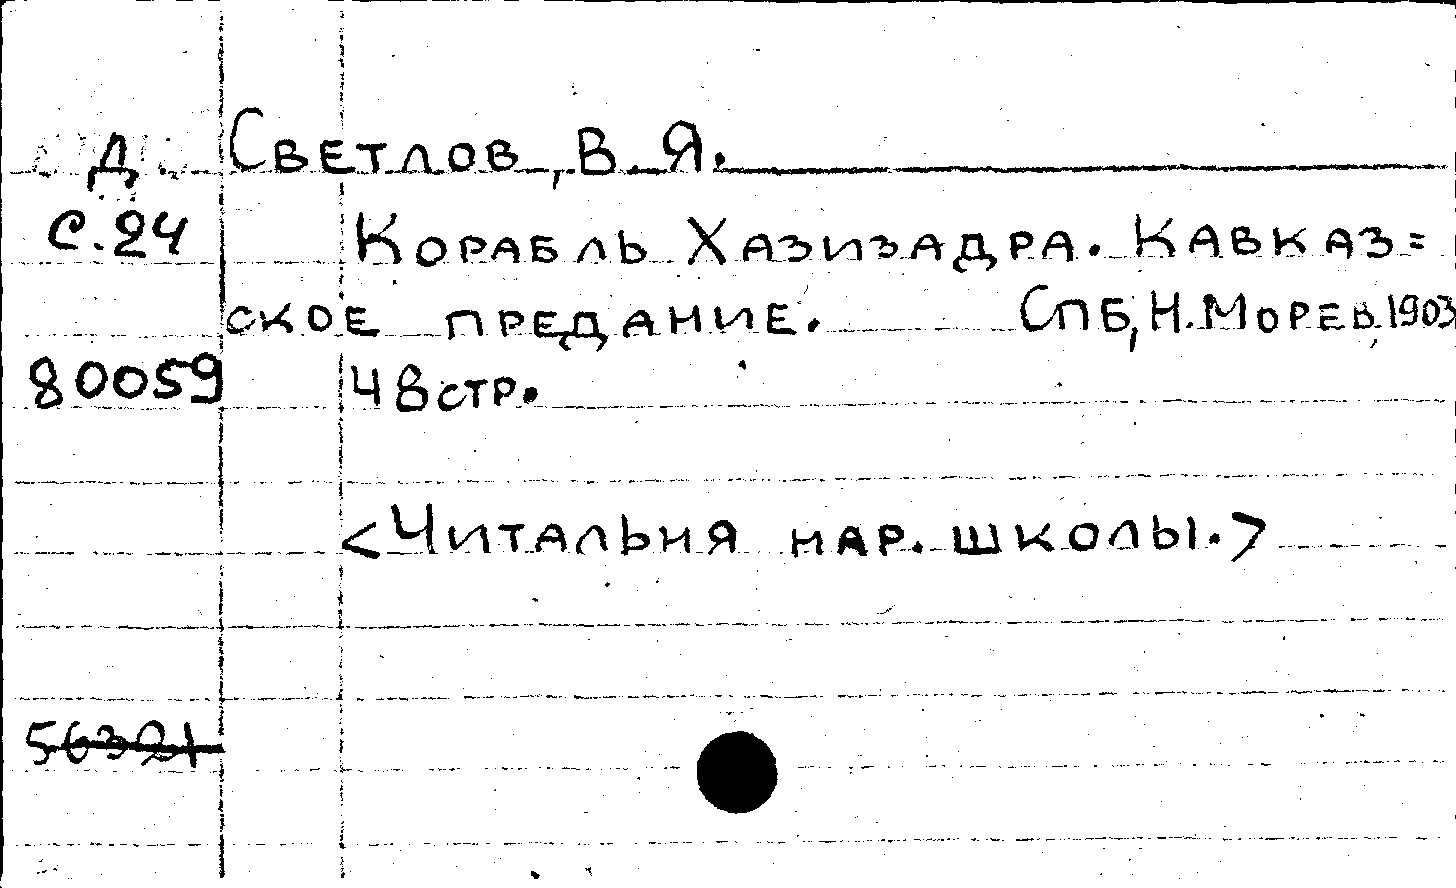 Д Светлов, В. Я.
С.24 Корабль Хазизадра. Кавказ=
ское предание. СПБ, Н. Морев, 1903
80059 48 стр.
<Читальня нар. школы.>
56321